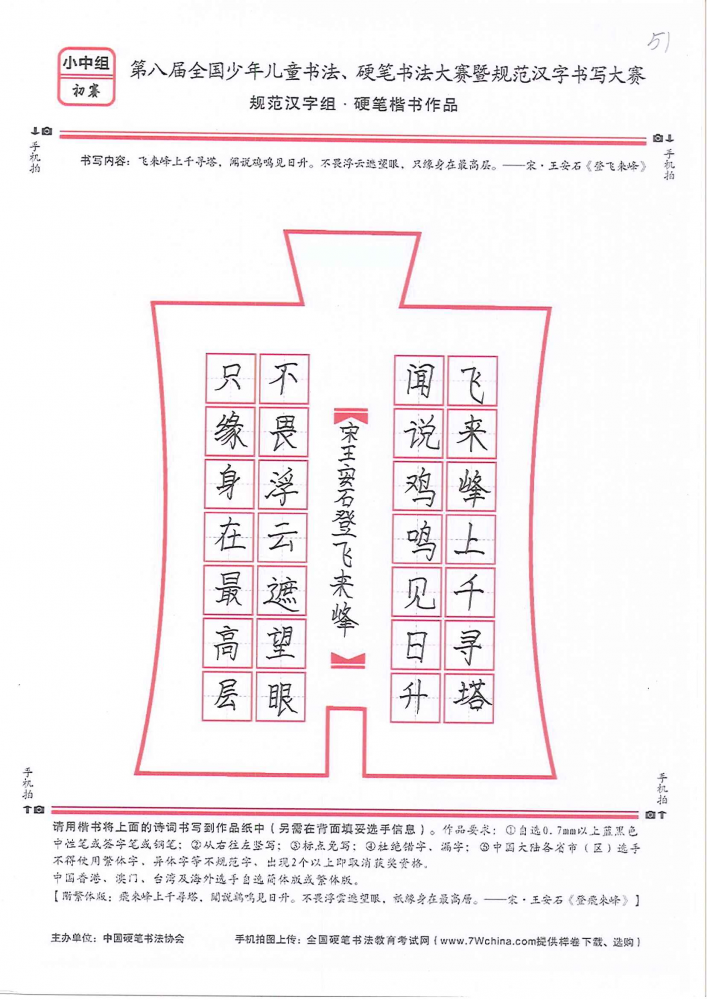 51
小中组
初赛
第八届全国少年儿童书法、硬笔书法大赛暨规范汉字书写大赛
规范汉字组·硬笔楷书作品
手机拍
手机拍
书写内容：飞来峰上千寻塔，闻说鸡鸣见日升。不畏浮云遮望眼，只缘身在最高层。——宋·王安石《登飞来峰》
飞来峰上千寻塔
闻说鸡鸣见日升
宋王安石登飞来峰
不畏浮云遮望眼
只缘身在最高层
手机拍
手机拍
请用楷书将上面的诗词书写到作品纸中（另需在背面填妥选手信息）。作品要求：①自选0.7mm以上蓝黑色
中性笔或签字笔或钢笔；②从右往左竖写；③标点免写；④杜绝错字、漏字；⑤中国大陆各省市（区）选手
不得使用繁体字、异体字等不规范字，出现2个以上即取消获奖资格。
中国香港、澳门、台湾及海外选手自选简体版或繁体版。
【附繁体版：飛來峰上千尋塔，聞説鷄鳴見日昇。不畏浮雲遮望眼，祇緣身在最高層。——宋·王安石《登飛來峰》】
主办单位：中国硬笔书法协会
手机拍图上传：全国硬笔书法教育考试网（www.7Wchina.com提供样卷下载、选购）